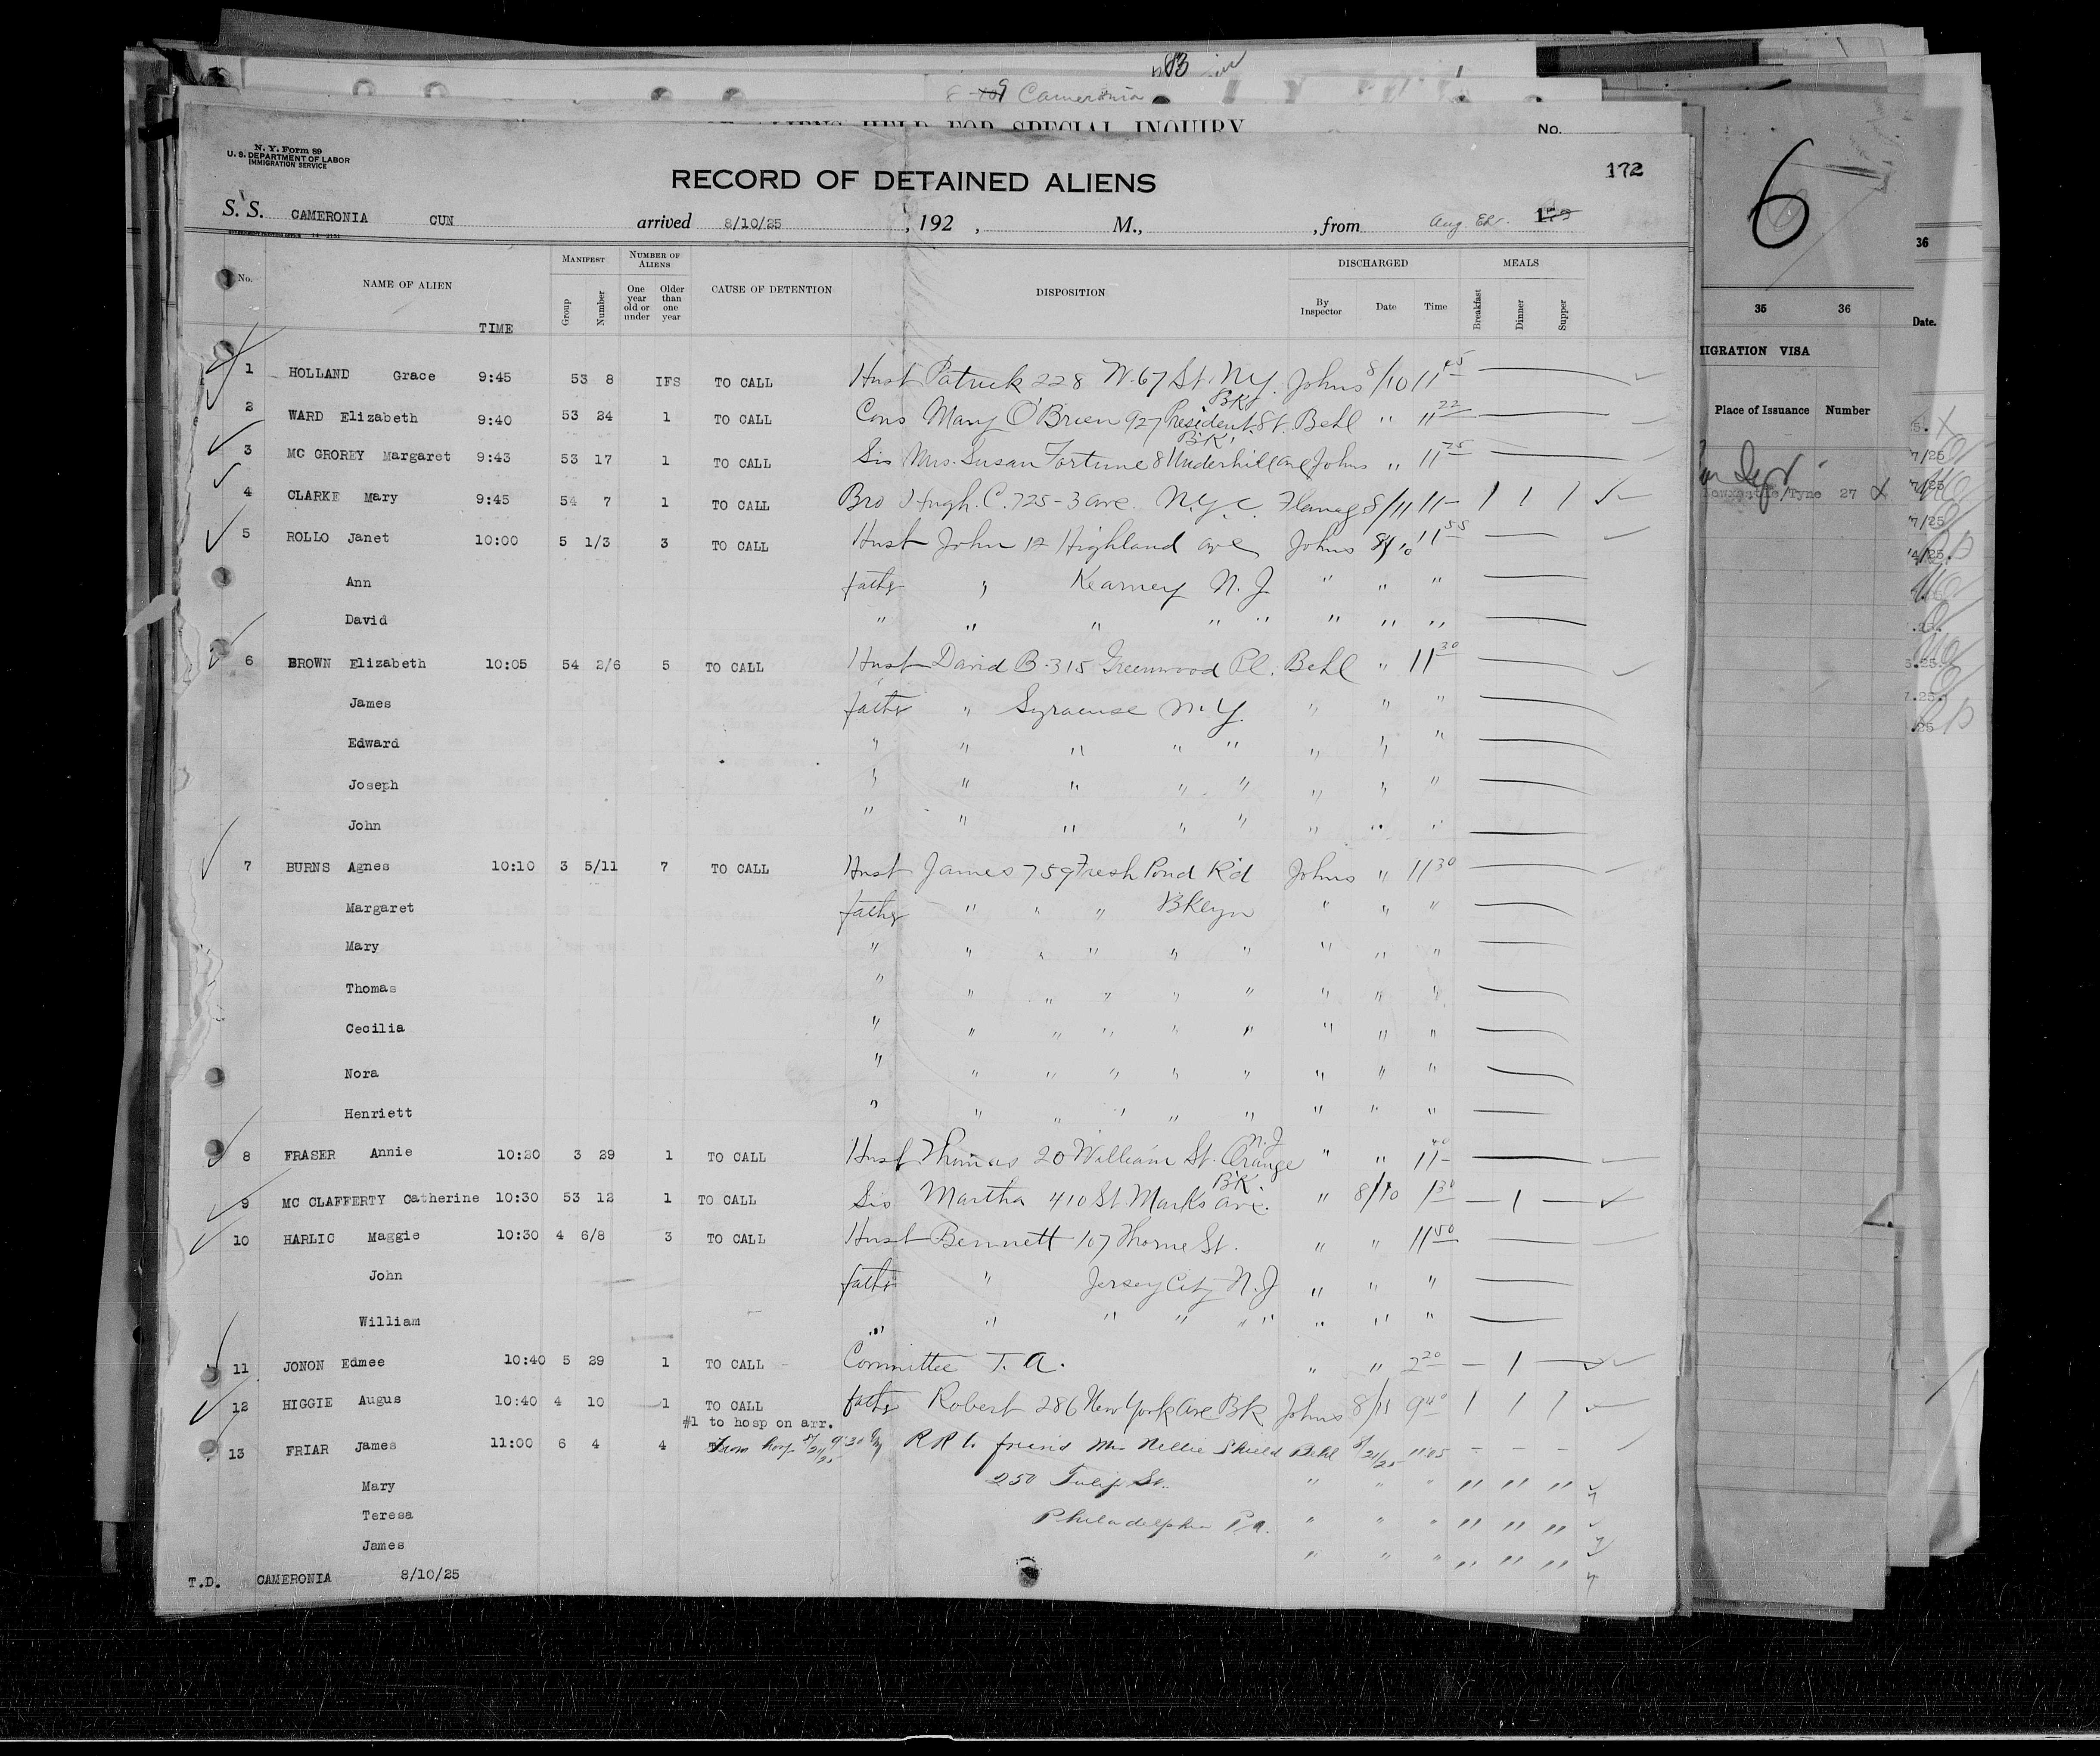 83
Cameronia
ALIENS HELD FOR SPECIAL INQUIRY
No.
N. Y. Form 89
U. S. DEPARTMENT OF LABOR
IMMIGRATION SERVICE
172
RECORD OF DETAINED ALIENS
S. S. CAMERONIA CUN arrived 8/10/25, 192 , M., , from
No. NAME OF ALIEN TIME MANIFEST Group Number NUMBER OF ALIENS One year old or under Older than one year CAUSE OF DETENTION DISPOSITION DISCHARGED By Inspector Date Time MEALS Breakfast Dinner Supper
1 HOLLAND Grace 9:45 53 8 IFS TO CALL Husb Patrick 228 W. 67 St. N.Y. Johns 8/10 11 45
2 WARD Elizabeth 9:40 53 24 1 TO CALL Cous Mary O'Brien 927 President St. Bk Behl " 11 22
3 MC GROREY Margaret 9:43 53 17 1 TO CALL Sis Mrs. Susan Fortune 8 Underhill ave Bk Johns " 11 25
4 CLARKE Mary 9:45 54 7 1 TO CALL Bro Hugh. C. 725-3 ave. N.Y.C. Flanag 8/11 11- 1 1 1
5 ROLLO Janet 10:00 5 1/3 3 TO CALL Husb John 12 Highland ave Johns 8/10 11 55
Ann father " Kearney N. J. " " "
David " " " " " " " "
6 BROWN Elizabeth 10:05 54 2/6 5 TO CALL Husb David B. 315 Greenwood Pl. Behl " 11 30
James father " Syracuse N.Y. " " "
Edward " " " " " " " "
Joseph " " " " " " " "
John " " " " " " " "
7 BURNS Agnes 10:10 3 5/11 7 TO CALL Husb James 759 Fresh Pond Rd Johns " 11 30
Margaret father " " " Bklyn " " "
Mary " " " " " " " " "
Thomas " " " " " " " " "
Cecilia " " " " " " " " "
Nora " " " " " " " " "
Henriett " " " " " " " " "
8 FRASER Annie 10:20 3 29 1 TO CALL Husb Thomas 20 William St. Orange N.J. " " 11 40
9 MC CLAFFERTY Catherine 10:30 53 12 1 TO CALL Sis Martha 410 St Marks ave. Bk. " 8/10 1 30 - 1 -
10 HARLIC Maggie 10:30 4 6/8 3 TO CALL Husb Bennett 107 Thorne St. " " 11 50
John father " Jersey City N.J " " "
William " " " " " " " " "
11 JONON Edmee 10:40 5 29 1 TO CALL - Committee T. A. " " 2 20 - 1 -
12 HIGGIE Augus 10:40 4 10 1 TO CALL father Robert 286 New York Ave Bk Johns 8/11 9 40 1 1 1
#1 to hosp on arr.
13 FRIAR James 11:00 6 4 4 from hosp 8/21/25 9:30 friend Mrs Nellie Shield Behl 8/21/25 11:05 - - -
Mary 250 Tulip St. " " " " " "
Teresa Philadelphia Pa. " " " " " "
James " " " " " "
T.D. CAMERONIA 8/10/25
6
36
35 36
Date.
IGRATION VISA
Place of Issuance Number
Newcastle/Tyne 27